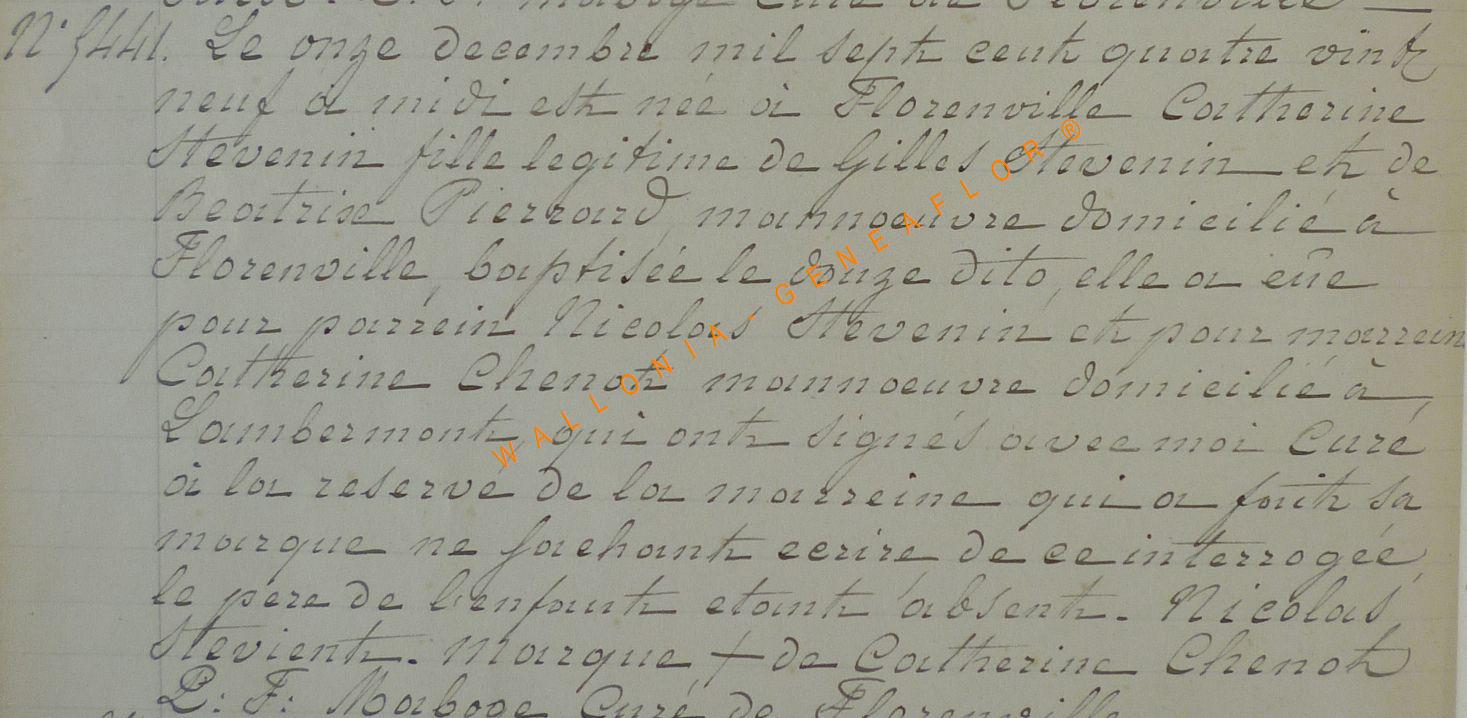 Curé de Florenville
N° 5441. Le onze decembre mil sept cent quatre vint
neuf a midi est née à Florenville Catherine
Stevenin fille legitime de Gilles Stevenin et de
Beatrix Pierrard, mannoeuvre domicilié à
Florenville, baptisée le douze dito, elle a eüe
pour parrein Nicolas Stevenin et pour marrein
Catherine Chenot mannoeuvre domicilié à
Lambermont, qui ont signés avec moi Curé
a la reserve de la marreine qui a fait sa
marque ne sachant ecrire de ce interrogée,
le pere de l'enfant etant absent. Nicolas
Stevient. Marque + de Catherine Chenot
P: F: Maboge Curé de Florenville
WALLONIA - GENEAFLOR ®